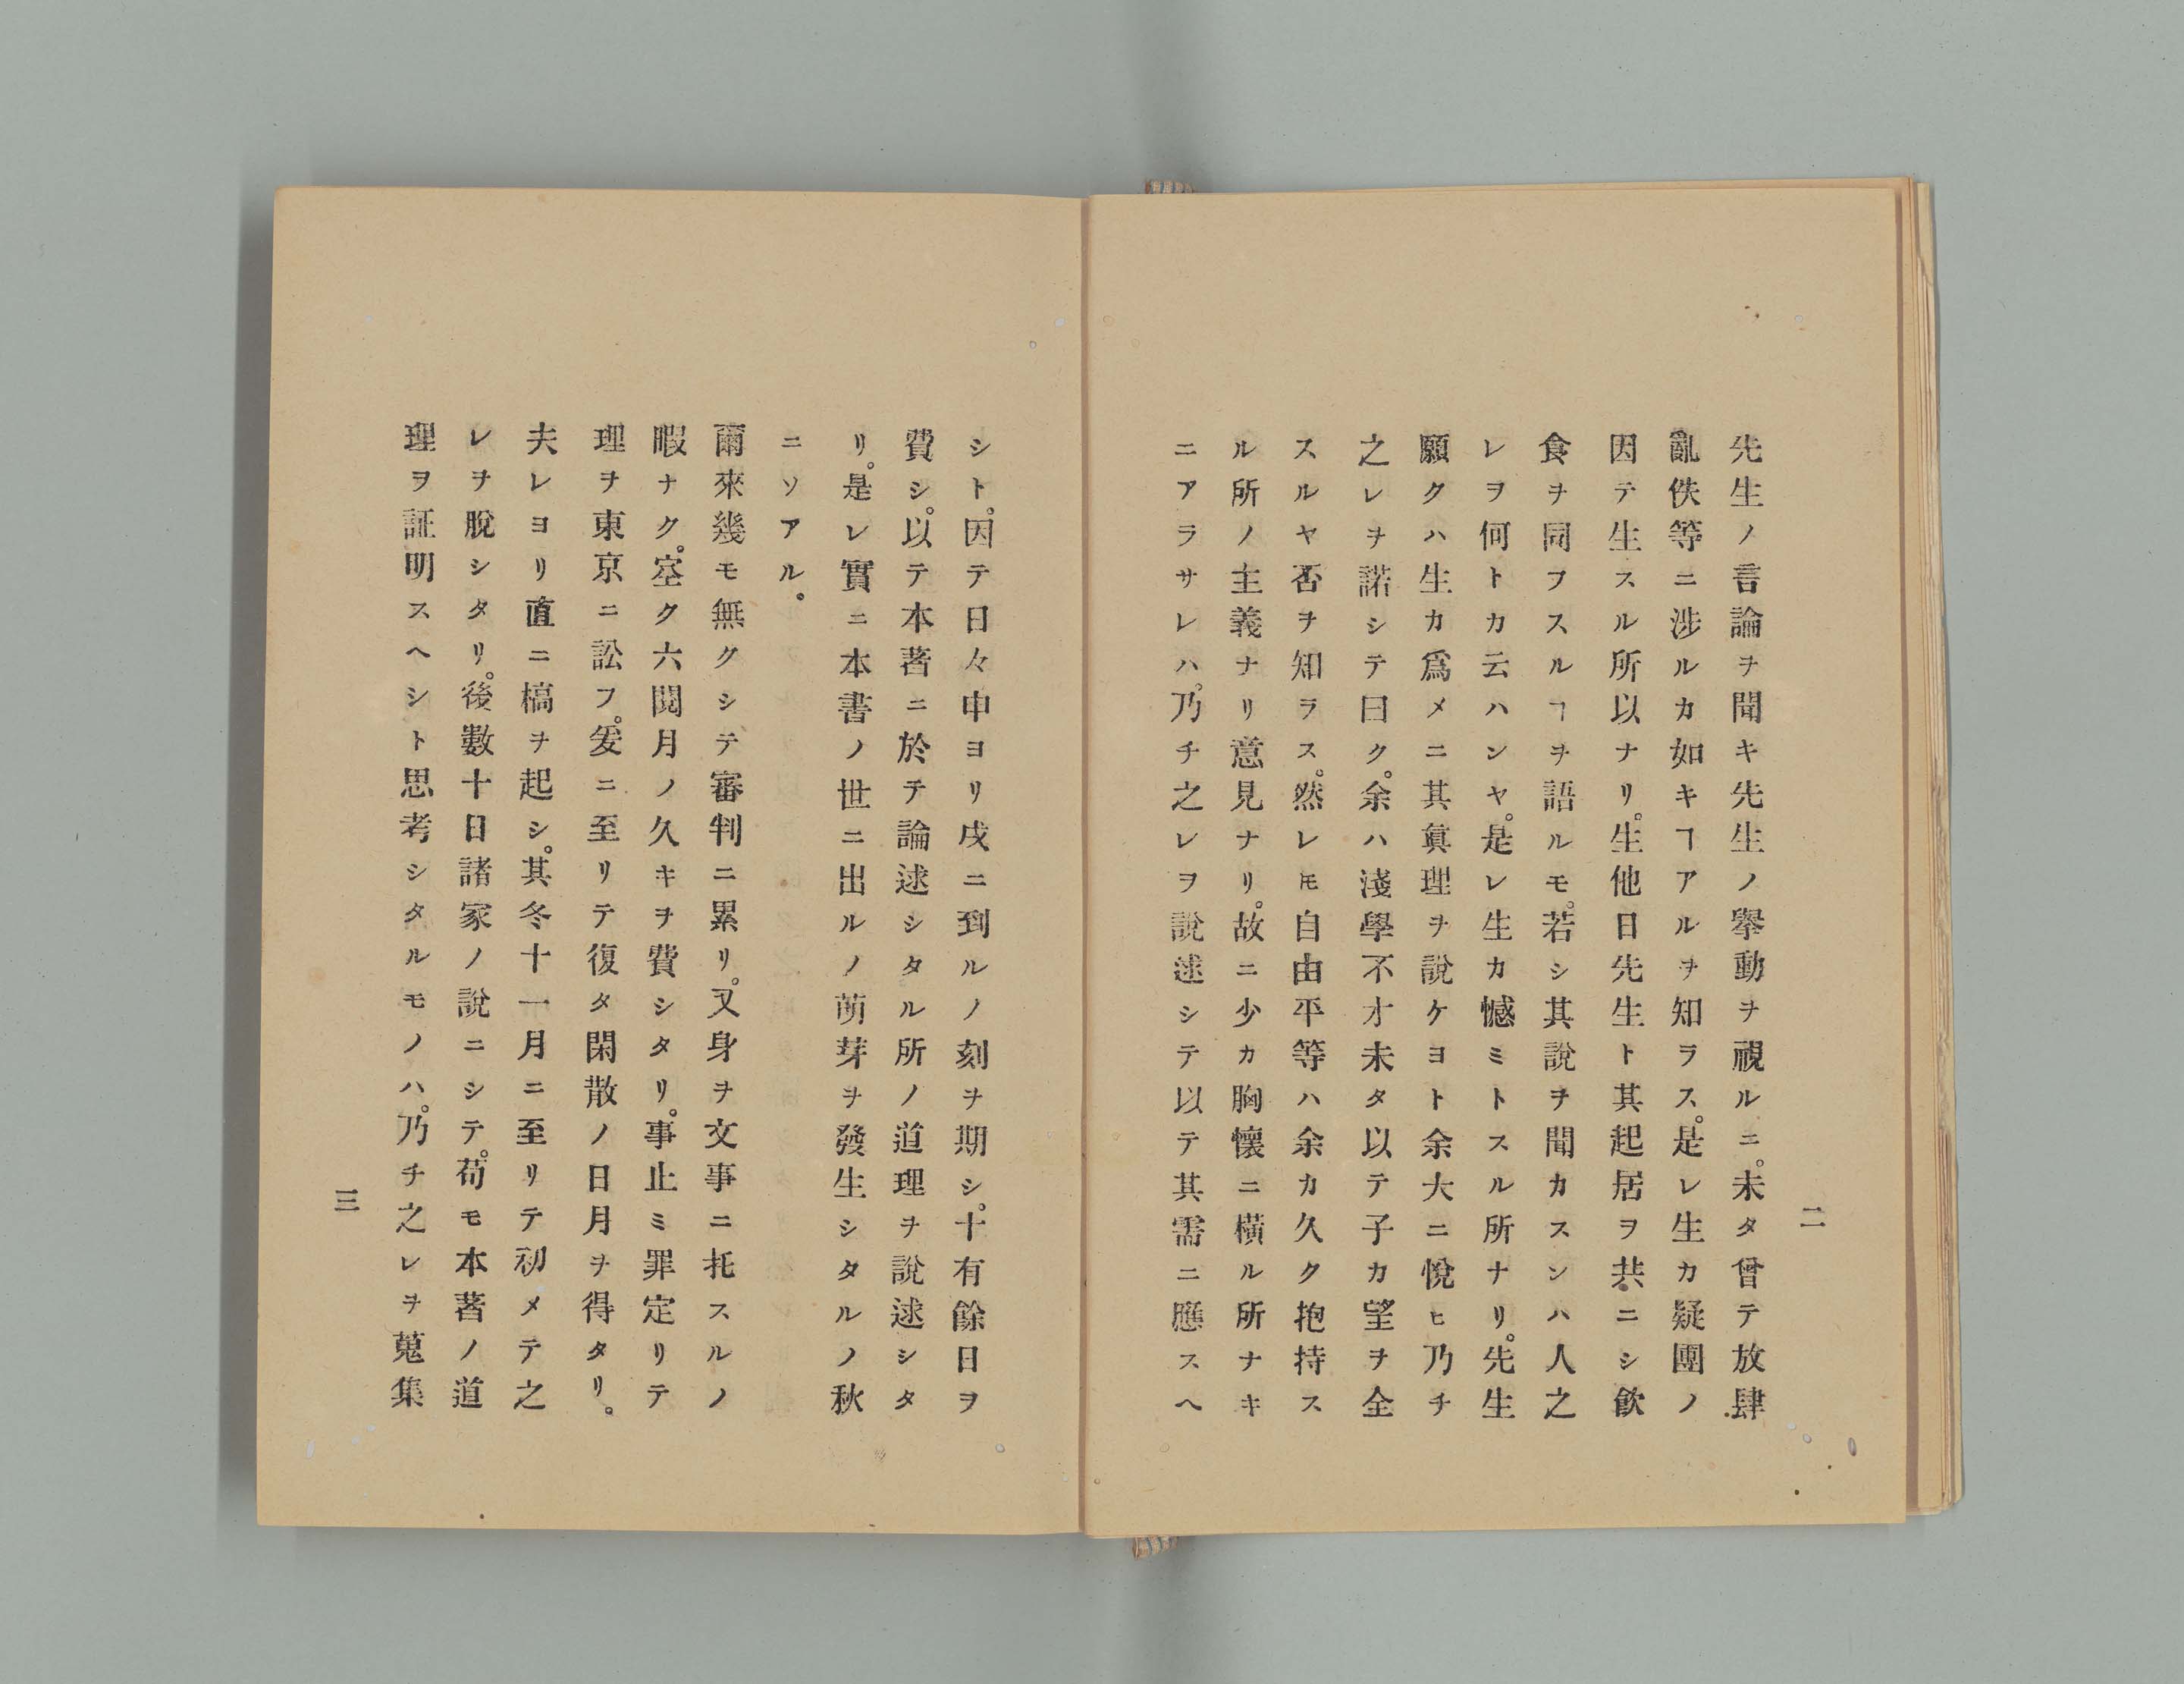 二
先生ノ言論ヲ聞キ先生ノ擧動ヲ視ルニ。未タ曾テ放肆
亂佚等ニ涉ルカ如キヿアルヲ知ラス。是レ生カ疑團ノ
因テ生スル所以ナリ。生他日先生ト其起居ヲ共ニシ飮
食ヲ同フスルヿヲ語ルモ。若シ其說ヲ聞カスンハ人之
レヲ何トカ云ハンヤ。是レ生カ憾ミトスル所ナリ。先生
願クハ生カ爲メニ其眞理ヲ說ケヨト余大ニ悅ヒ乃チ
之レヲ諾シテ曰ク。余ハ淺學不才未タ以テ子カ望ヲ全
スルヤ否ヲ知ラス。然レ𪜈自由平等ハ余カ久ク抱持ス
ル所ノ主義ナリ意見ナリ。故ニ少カ胸懷ニ橫ル所ナキ
ニアラサレハ。乃チ之レヲ說述シテ以テ其需ニ應スヘ
シト。因テ日々申ヨリ戌ニ到ルノ刻ヲ期シ。十有餘日ヲ
費シ。以テ本著ニ於テ論述シタル所ノ道理ヲ說述シタ
リ。是レ實ニ本書ノ世ニ出ルノ萠芽ヲ發生シタルノ秋
ニソアル。
爾來幾モ無クシテ審判ニ累リ。又身ヲ文事ニ托スルノ
暇ナク。空ク六閱月ノ久キヲ費シタリ。事止ミ罪定リテ
理ヲ東京ニ訟フ。爰ニ至リテ復タ閑散ノ日月ヲ得タリ。
夫レヨリ直ニ槁ヲ起シ。其冬十一月ニ至リテ初メテ之
レヲ脫シタリ。後數十日諸家ノ說ニシテ。苟モ本著ノ道
理ヲ証明スヘシト思考シタルモノハ。乃チ之レヲ蒐集
三